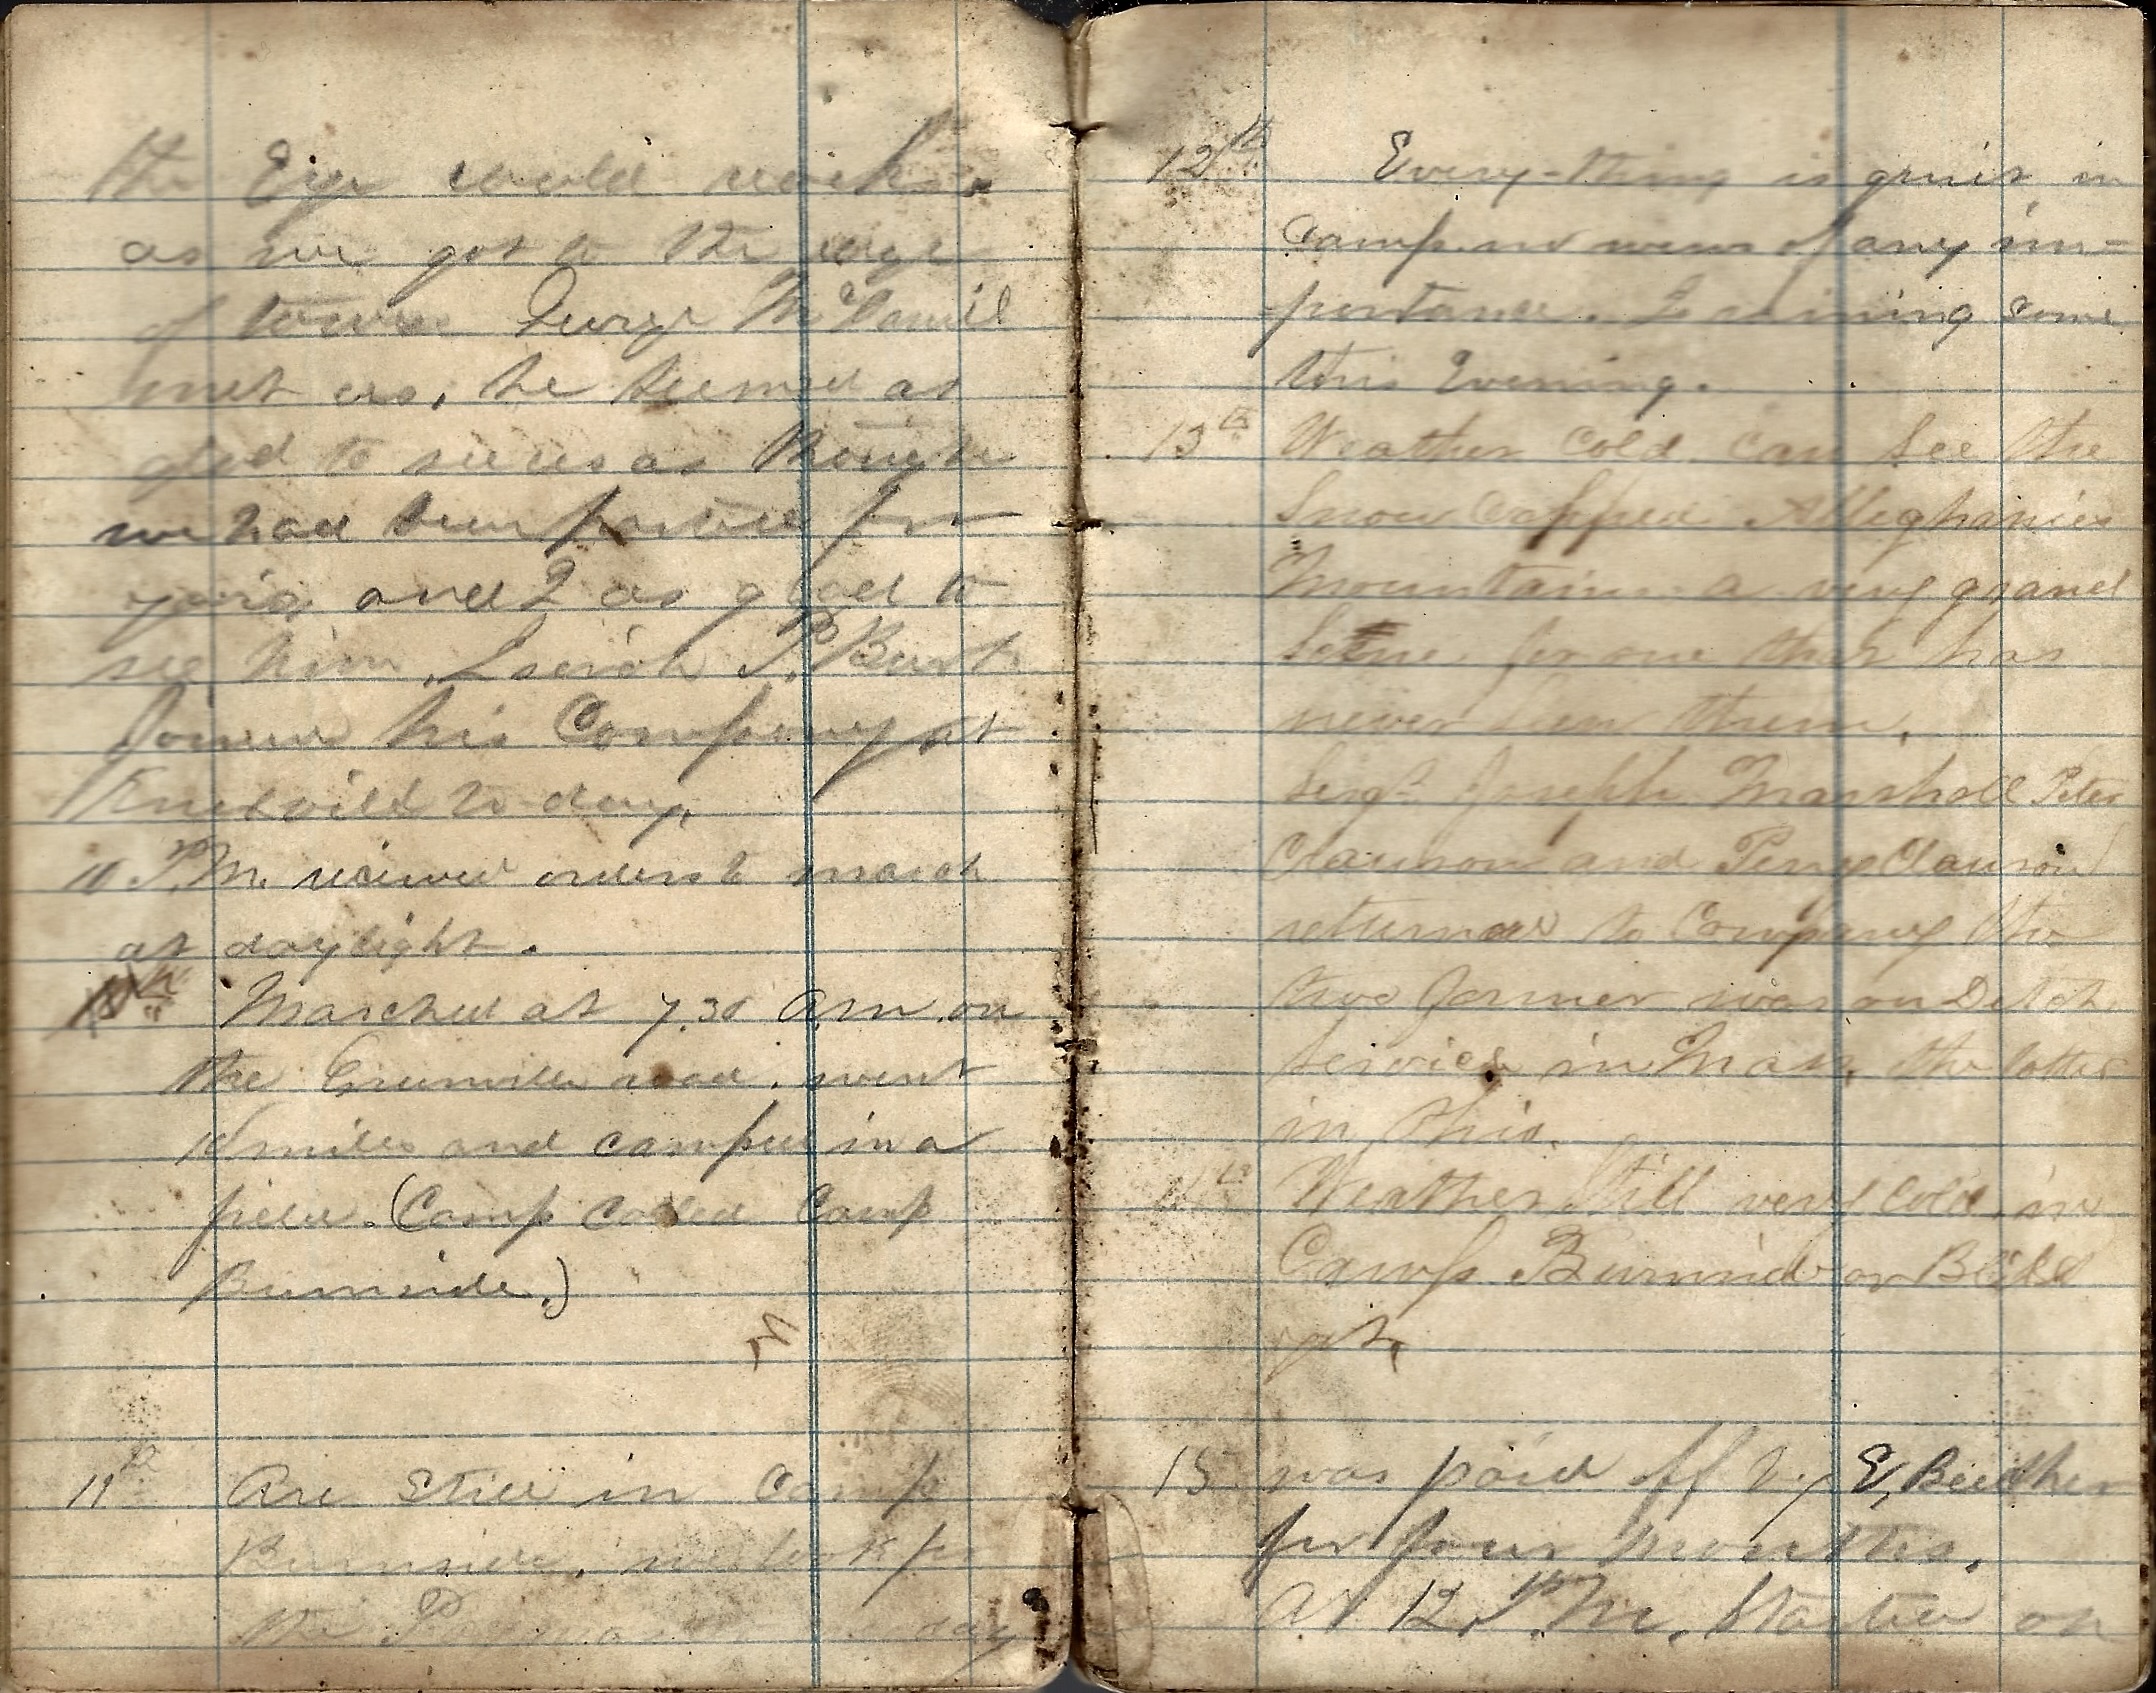 the Eye could reach.
as we got to the edge
of town. George McDanil
met us, he seemed as
glad to see us as though
we had been parted for
years and I as glad to
see him. P. Burk
Joined his Company at
Knoxvill to-day,
10 P.M. received orders to march
at daylight.
10th Marched at 7.30 A.m. on
the Greenville road. went
miles and camped in a
field. (Camp Called Camp
Burnside.)
11th Are Still in Camp
Burnside. we look for
the Paymaster day
12th Every-thing is quiet in
Camp. no news of any im-
portance. Raining some
this Evening.
13th Weather Cold. Can See the
Snow Capped Alleghanies
Mountains a very grand
Scene for one that has
never seen them.
Sergt Joseph Marshall Peter
Clauson and Perry Clauson
returned to Company the
two former was on Detch
Service in Mass, the latter
in this.
14th Weather Still very Cold. in
Camp Burnside or
yet,
15 was paid off by E, Beecher
for four months.
At 12, P.M. Started on